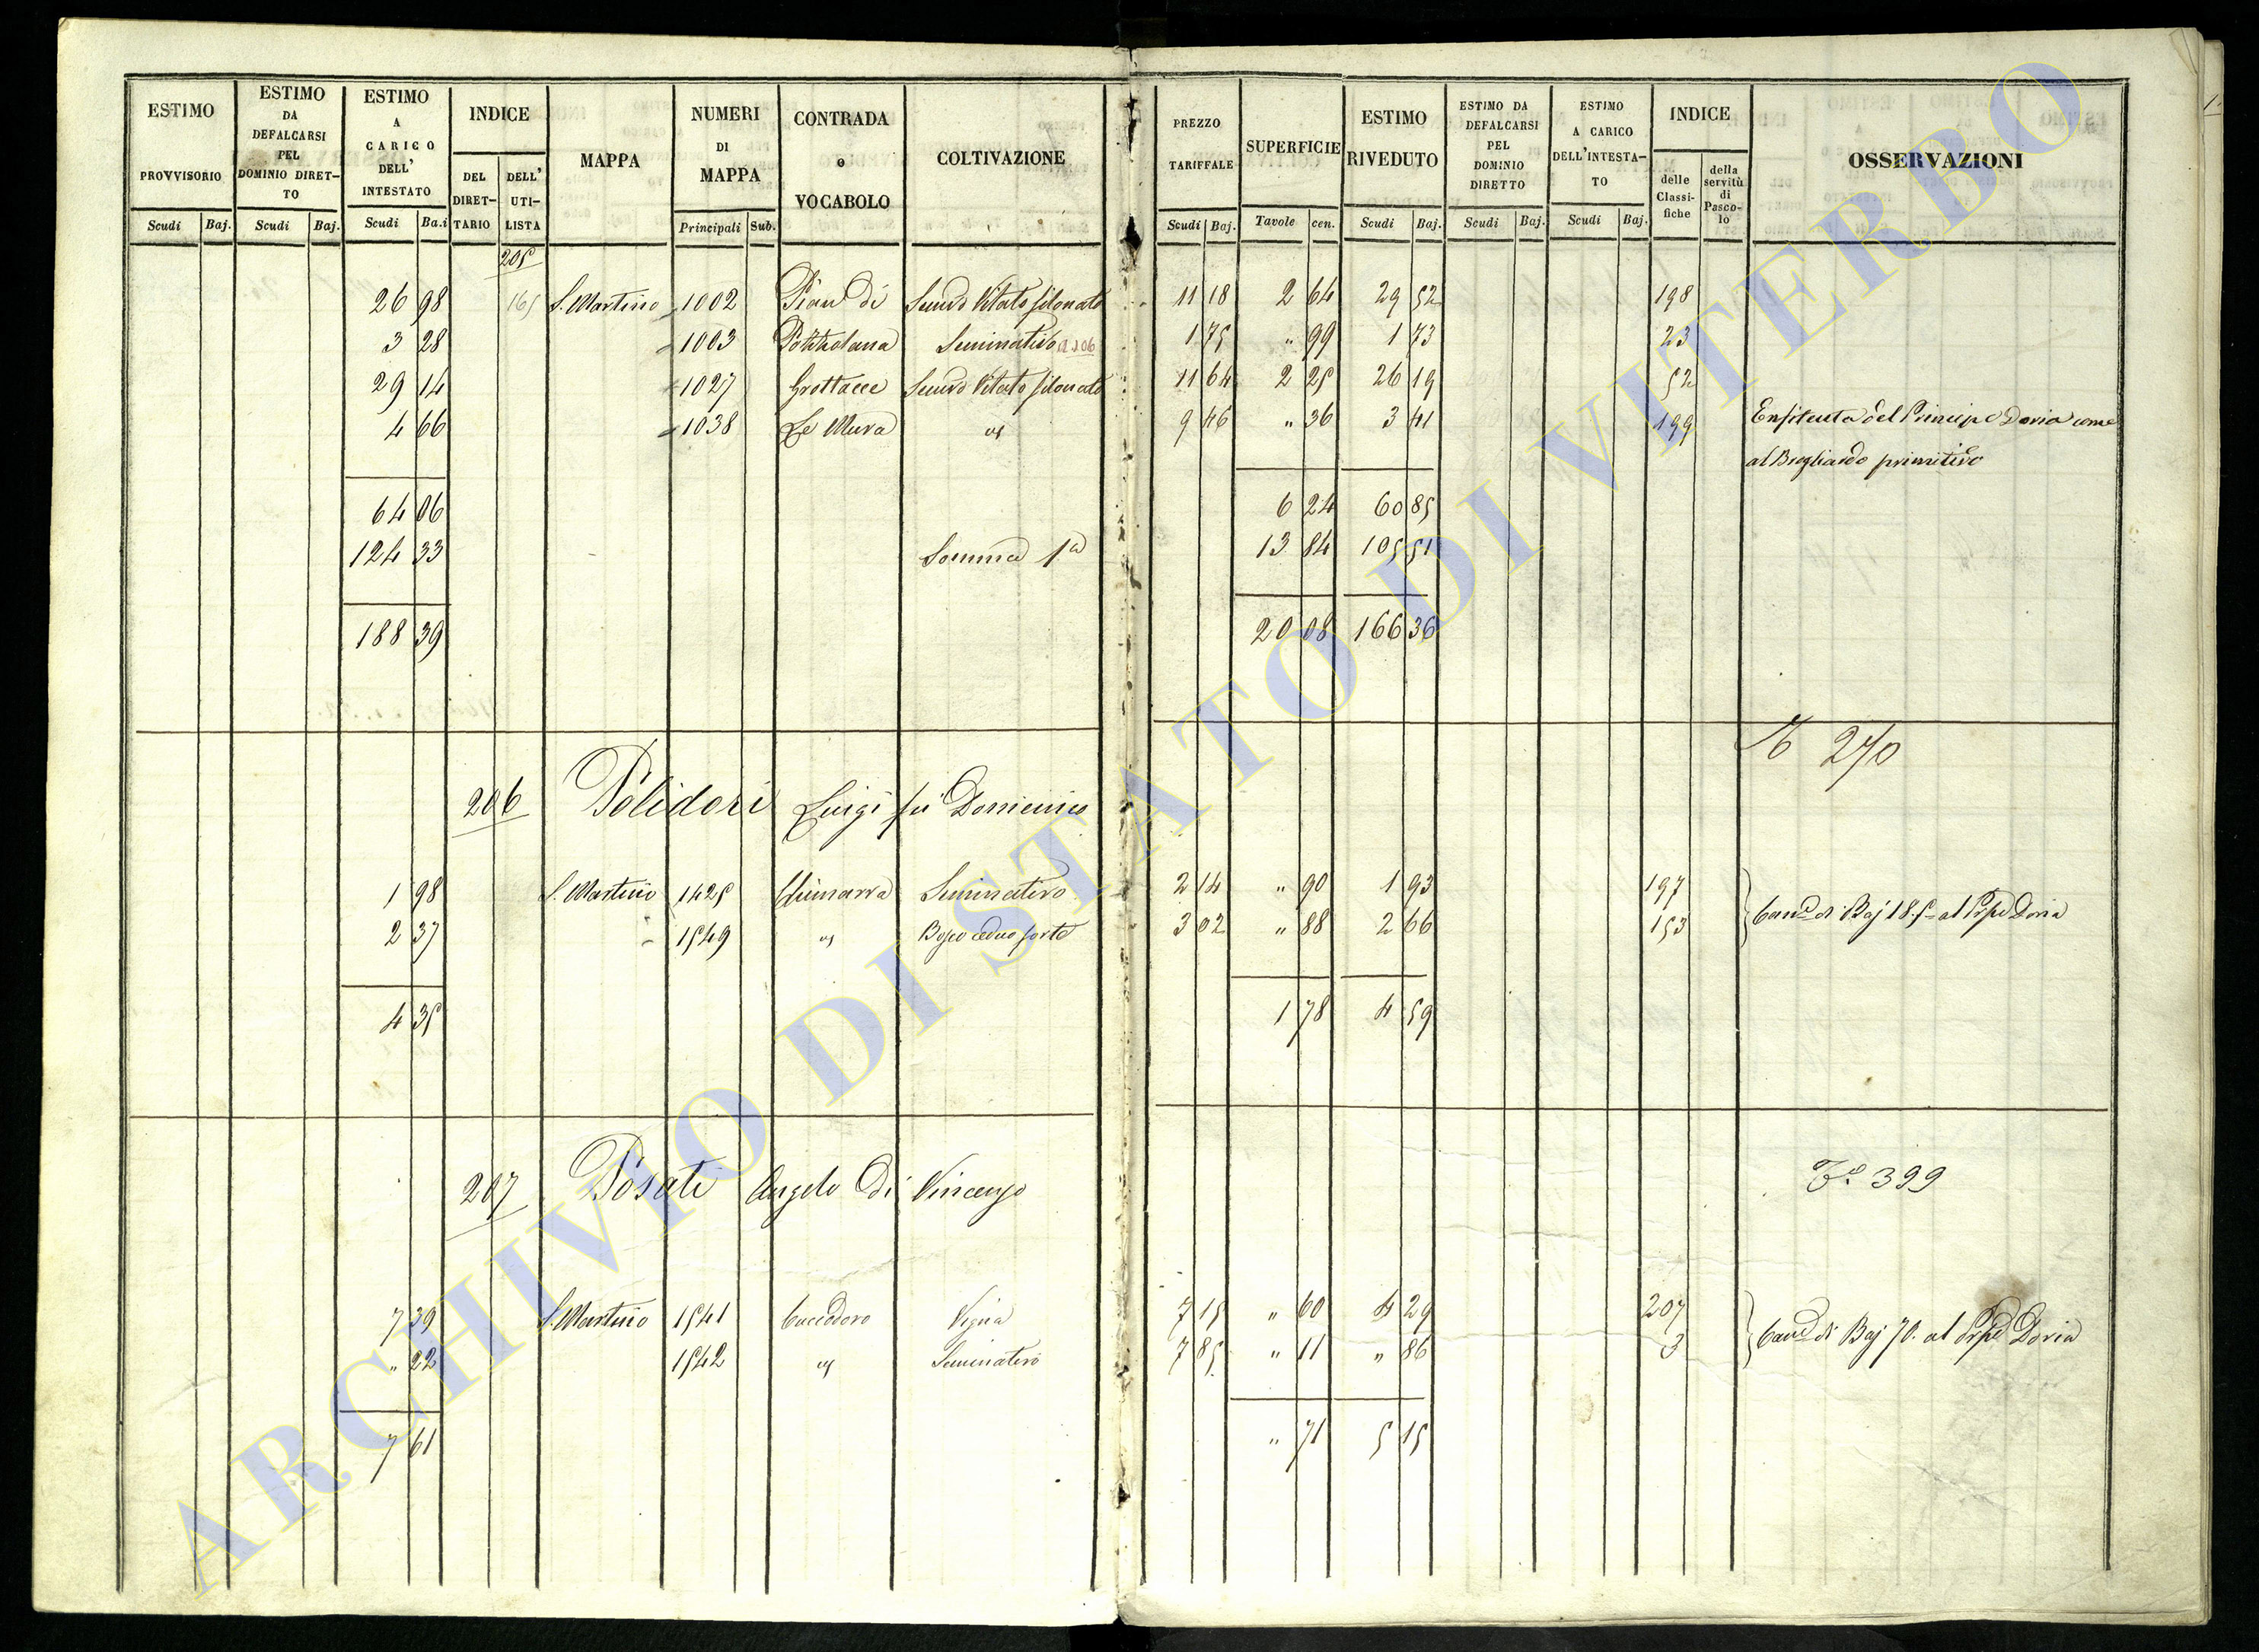 ESTIMO PROVVISORIO Scudi Baj.
ESTIMO DA DEFALCARSI PEL DOMINIO DIRET-TO Scudi Baj.
ESTIMO A CARICO DELL' INTESTATO Scudi Ba.i
INDICE DEL DIRET-TARIO DELL' UTI-LISTA
MAPPA
NUMERI DI MAPPA Principali Sub.
CONTRADA o VOCABOLO
COLTIVAZIONE
PREZZO TARIFFALE Scudi Baj.
SUPERFICIE Tavole cen.
ESTIMO RIVEDUTO Scudi Baj.
ESTIMO DA DEFALCARSI PEL DOMINIO DIRETTO Scudi Baj.
ESTIMO A CARICO DELL'INTESTA-TO Scudi Baj.
INDICE delle Classi-fiche della servitù di Pasco-lo
OSSERVAZIONI
205
26 98 165 S. Martino 1002 Pian di Semvo Vitato filonato 11 18 2 64 29 52 198
3 28 1003 Pozzolana Seminativo 1 75 " 99 1 73 23
29 14 1027 Grottacce Semvo Vitato filonato 11 64 2 25 26 19 52
4 66 1038 Le Mura 9 46 " 36 3 41 199 Enfiteuta del Principe Doria come
al Brogliardo primitivo
64 06 6 24 60 85
124 33 Somma 1a 13 84 105 51
188 39 20 08 166 36
270
206 Polidori Luigi fu Domenico
1 98 S. Martino 1425 Chimarra Seminativo 2 14 " 90 1 93 197
2 37 1549 Bosco ceduo forte 3 02 " 88 2 66 153 Cane di Baj 18.5 al Pspe Doria
4 35 1 78 4 59
207 Posati Angelo di Vincenzo
To 399
7 39 S. Martino 1541 Cuccodoro Vigna 7 15 " 60 4 29 207
" 22 1542 Seminativo 7 85 " 11 " 86 3 Cane di Baj 70. al Pspe Doria
7 61 " 71 5 15
ARCHIVIO DI STATO DI VITERBO